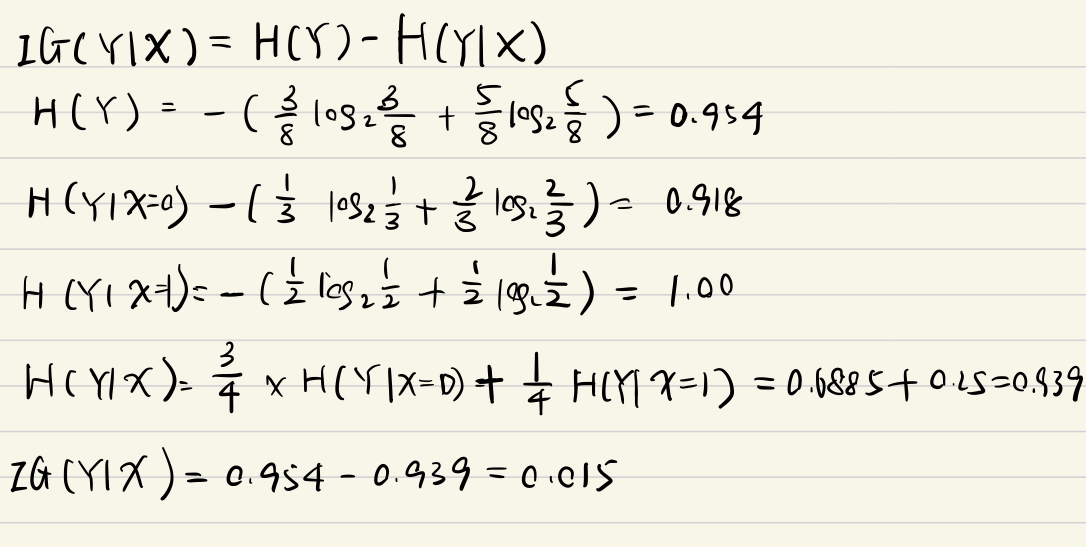 IG(Y|X) = H(Y) - H(Y|X)
H(Y) = - ( 3/8 log₂ 3/8 + 5/8 log₂ 5/8 ) = 0.954
H(Y|X=0) - ( 1/3 log₂ 1/3 + 2/3 log₂ 2/3 ) = 0.918
H(Y|X=1) = - ( 1/2 log₂ 1/2 + 1/2 log₂ 1/2 ) = 1.00
H(Y|X) = 3/4 × H(Y|X=0) + 1/4 H(Y|X=1) = 0.6885 + 0.25 = 0.939
IG(Y|X) = 0.954 - 0.939 = 0.015